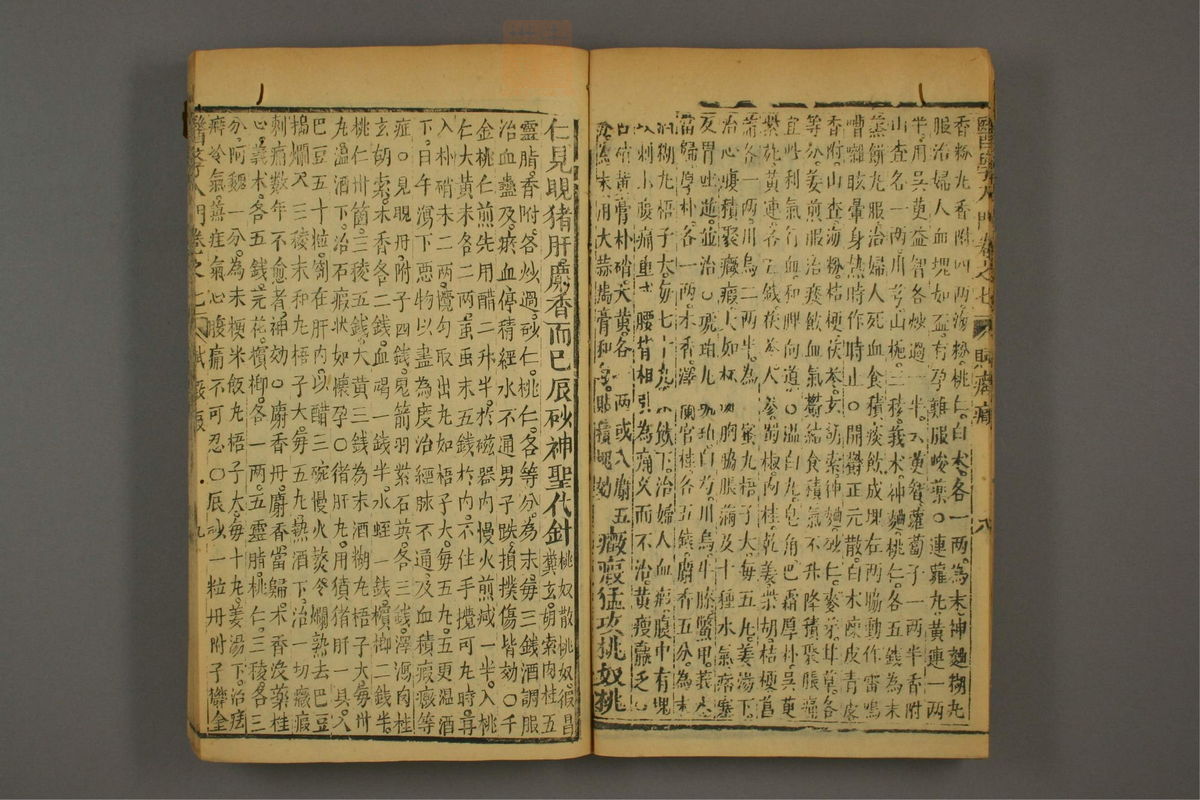 香粉丸香附四兩海粉桃仁白朮各一兩為末神麯糊丸
服治婦人血塊如盃有孕難服峻藥○連蘿丸黃連一兩
半用吳萸益智各炒過一半蘿蔔子一兩半香附
山查各一兩川芎山梔三稜莪朮神麯桃仁各五錢為末
蒸餅丸服治婦人死血食積痰飲成塊在兩脇動作雷鳴
嘈囃眩暈身熱時作時止○開鬱正元散白朮陳皮青皮
香附山查海粉桔梗茯苓玄胡索神麯砂仁麥芽甘草各
等分姜煎服治痰飲血氣鬱結食積氣不升降積聚脹痛
宜此利氣行血和脾向道○溫白丸皂角巴霜厚朴吳萸
紫菀黃連各五錢茯苓人參蜀椒肉桂乾姜柴胡桔梗菖
蒲各一兩川烏二兩半為蜜丸梧子大每五丸姜湯下
治心腹積聚癥瘕大如杯胸脇脹滿及十種水氣痞塞
反胃吐逆並治○琥珀丸琥珀白芍川烏牛膝鱉甲莪朮
當歸厚朴各一兩木香澤蘭官桂各五錢麝香五分為末
糊丸梧子大每七十丸下治婦人血瘕腹中有塊
刺小腹痛重或腰背相引為痛久而不治黃瘦羸乏○
古硝黃膏朴硝大黃各一兩或入麝五
分為末用大蒜搗膏和勻貼積塊効 癥瘕猛攻桃奴桃
醫學入門卷之七 八
仁見睍猪肝麝香而已辰砂神聖代針 桃奴散桃奴猳
鼠糞玄胡索肉桂五
靈脂香附各炒過砂仁桃仁各等分為末每三錢酒調服
治血蠱及瘀血停積經水不通男子跌損撲傷皆効○千
金桃仁煎先用醋二升半於磁器內慢火煎減一半入桃
仁大黃末各二兩虻虫末五錢於內不住手攪可丸時尋
入朴硝末二兩攪勻取出丸如梧子大每五丸五更溫酒
下日午瀉下惡物以盡為度治經脉不通及血積癥瘕等
症○見睍丹附子四錢鬼箭羽紫石英各三錢澤瀉肉桂
玄胡索木香各二錢血竭一錢半水蛭一錢檳榔二錢半
桃仁卅箇三稜五錢大黃三錢為末酒糊丸梧子大每卅
丸溫酒下治石瘕狀如懷孕○猪肝丸用獖猪肝一具入
巴豆五十粒劄在肝內以醋三碗慢火熬令爛熟去巴豆
搗爛入三稜末和丸梧子大每五丸熱酒下治一切癥瘕
刺痛數年不愈者神効○麝香丹麝香當歸木香沒藥桂
心莪朮各五錢芫花檳榔各一兩五靈脂桃仁三稜各三
分阿魏一分為末粳米飯丸梧子大每十丸姜湯下治痃
癖冷氣癥症氣心腹痛不可忍○辰砂一粒丹附子欝金
醫學入門卷之七 九